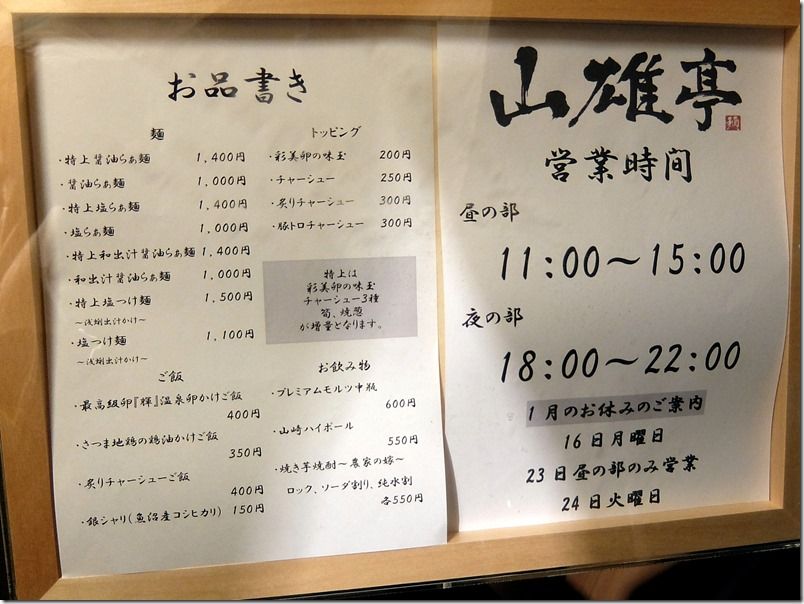 お品書き
麺
・特上醤油らぁ麺 1,400円
・醤油らぁ麺 1,000円
・特上塩らぁ麺 1,400円
・塩らぁ麺 1,000円
・特上和出汁醤油らぁ麺 1,400円
・和出汁醤油らぁ麺 1,000円
・特上塩つけ麺 1,500円
～浅蜊出汁かけ～
・塩つけ麺 1,100円
～浅蜊出汁かけ～
トッピング
・彩美卵の味玉 200円
・チャーシュー 250円
・炙りチャーシュー 300円
・豚トロチャーシュー 300円
特上は
彩美卵の味玉
チャーシュー3種
筍、焼葱
が増量となります。
ご飯
・最高級卵『輝』温泉卵かけご飯
400円
・さつま地鶏の鶏油かけご飯
350円
・炙りチャーシューご飯
400円
・銀シャリ(魚沼産コシヒカリ) 150円
お飲み物
・プレミアムモルツ中瓶
600円
・山崎ハイボール
550円
・焼き芋焼酎～農家の嫁～
ロック、ソーダ割り、純水割
各550円
山雄亭
営業時間
昼の部
11:00～15:00
夜の部
18:00～22:00
1月のお休みのご案内
16日月曜日
23日昼の部のみ営業
24日火曜日